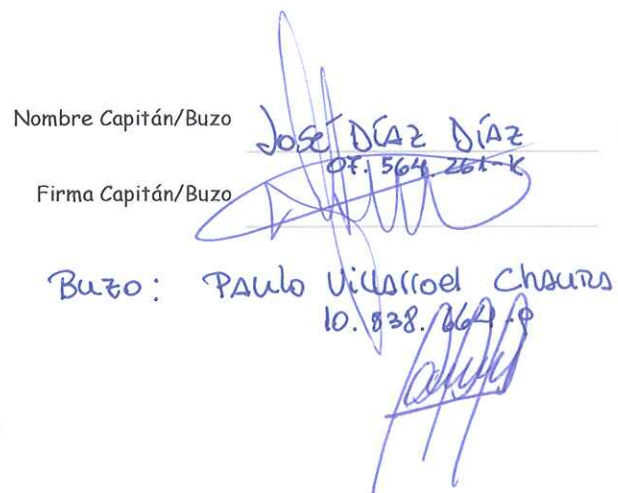 Nombre Capitán/Buzo José Díaz Díaz
07.564.261-K
Firma Capitán/Buzo
Buzo: Paulo Villarroel Chaura
10.838.664-